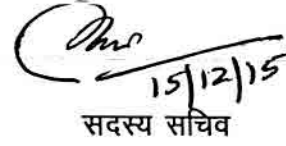 15/12/15
सदस्य सचिव